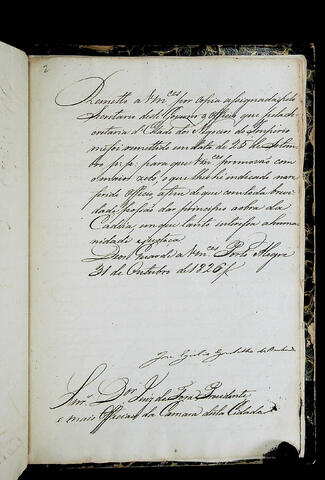 2
Remetto a Vm.ces por copia assignada pelo
Secretario deste Governo o Officio que pela Secre-
taria d'Estado dos Negocios do Imperio
me foi remettido em data de 25 de Setem-
bro p. p. para que Vm.ces promovão com
o maior zelo, o que lhes he indicado no re-
ferido Officio, afim de que com toda brevi-
dade possão dar principio a obra da
Cadeia, em que tanto interessa a huma-
nidade e justiça.
Deos Guarde a Vm.ces Porto Alegre
31 de Outubro de 1826
José Egidio Gordilho de Barbuda
Snr.es Dor. Juiz de Fora Presidente
e mais Officiaes da Camara desta Cidade